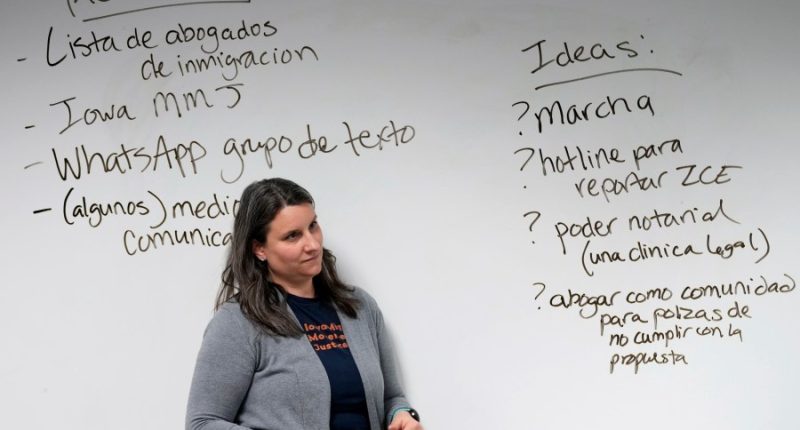 - Lista de abogados
de inmigracion
- Iowa MMJ
- WhatsApp grupo de texto
- (algunos) medio
comunica
Ideas:
? Marcha
? hotline para
reportar ICE
? poder notarial
(una clinica legal)
? abogar como comunidad
para polzas de
no cumplir con la
propuesta
Justice